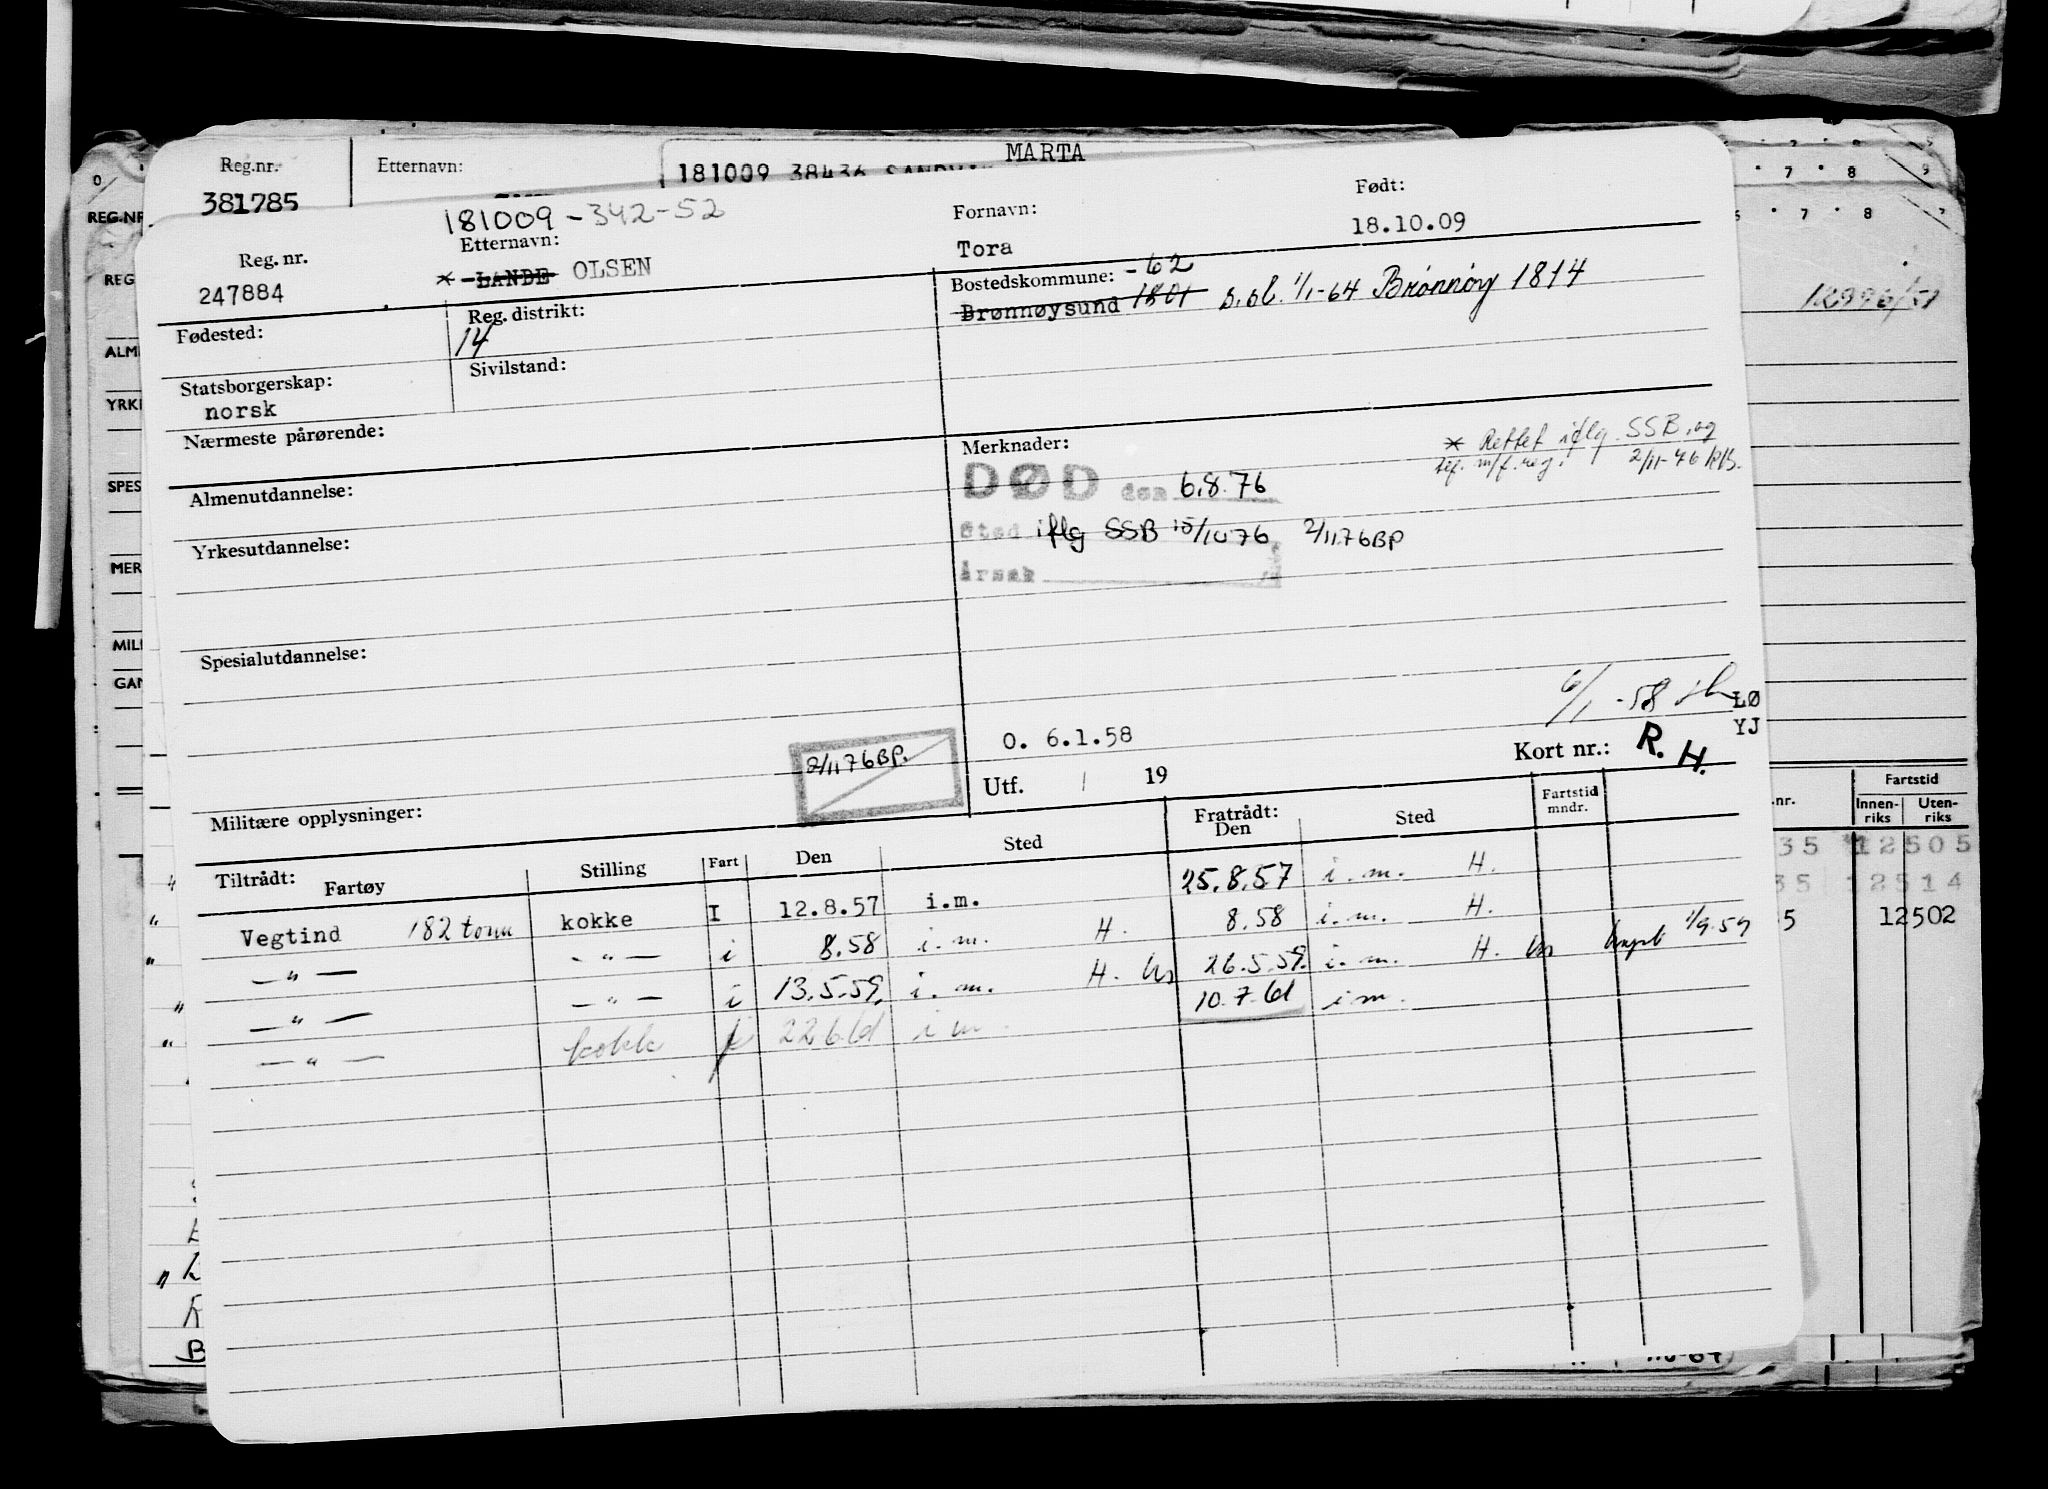 MARTA
Reg.nr. Etternavn: 181009 38436
381785
REG.NR
181009-342-52
Reg. nr. Etternavn: Fornavn: Født:
247884 * -LANDE OLSEN Tora 18.10.09
Fødested: Reg. distrikt: Bostedskommune: -62
14 Brønnøysund 1801 s.sl. 1/1-64 Brønnøy 1814
12996/51
Statsborgerskap: Sivilstand:
norsk
Nærmeste pårørende: Merknader: * Rettet iflg. SSB. og
tif. m/f.reg. 2/11-76
Almenutdannelse: DØD den 6.8.76
Yrkesutdannelse: Sted iflg SSB 15/10 76 2/11.76 BP
Årsak
Spesialutdannelse:
6/1-58 LØ
YJ
O. 6.1.58
2/11 76 BP.
Utf. / 19 Kort nr.: R. H.
Militære opplysninger:
Tiltrådt: Fartøy Stilling Fart Den Sted Fratrådt: Den Sted Fartstid mndr.
Vegtind 182 tonn kokke I 12.8.57 i.m. 25.8.57 i.m. H.
— " — - " — i 8.58 i.m. H. 8.58 i.m. H.
— " — — " — i 13.5.59. i.m. H. 26.5.59. i.m. H. 1/9.59
— " — kokk 22661 i m 10.7.61 i m.
.nr. Fartstid
Innen-riks Uten-riks
35 12505
35 12514
5 12502